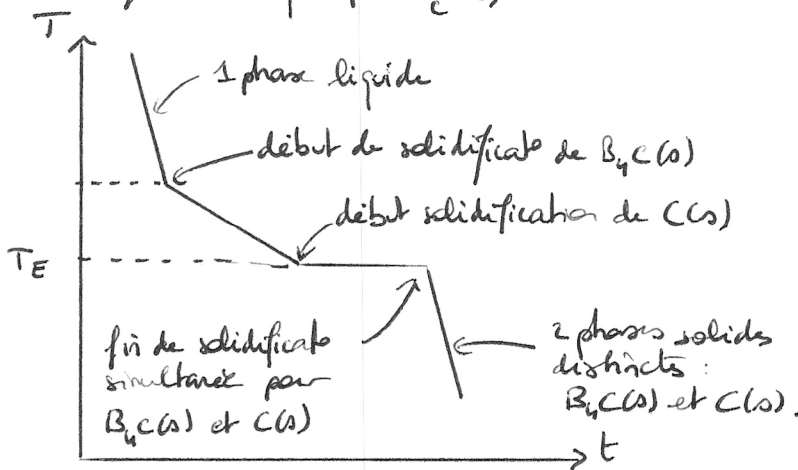 T
1 phase liquide
début de solidificat° de B₄C(s)
début solidification de C(s)
T_E
fin de solidificat°
simultanée pour
B₄C(s) et C(s)
2 phases solides
distinctes :
B₄C(s) et C(s).
t